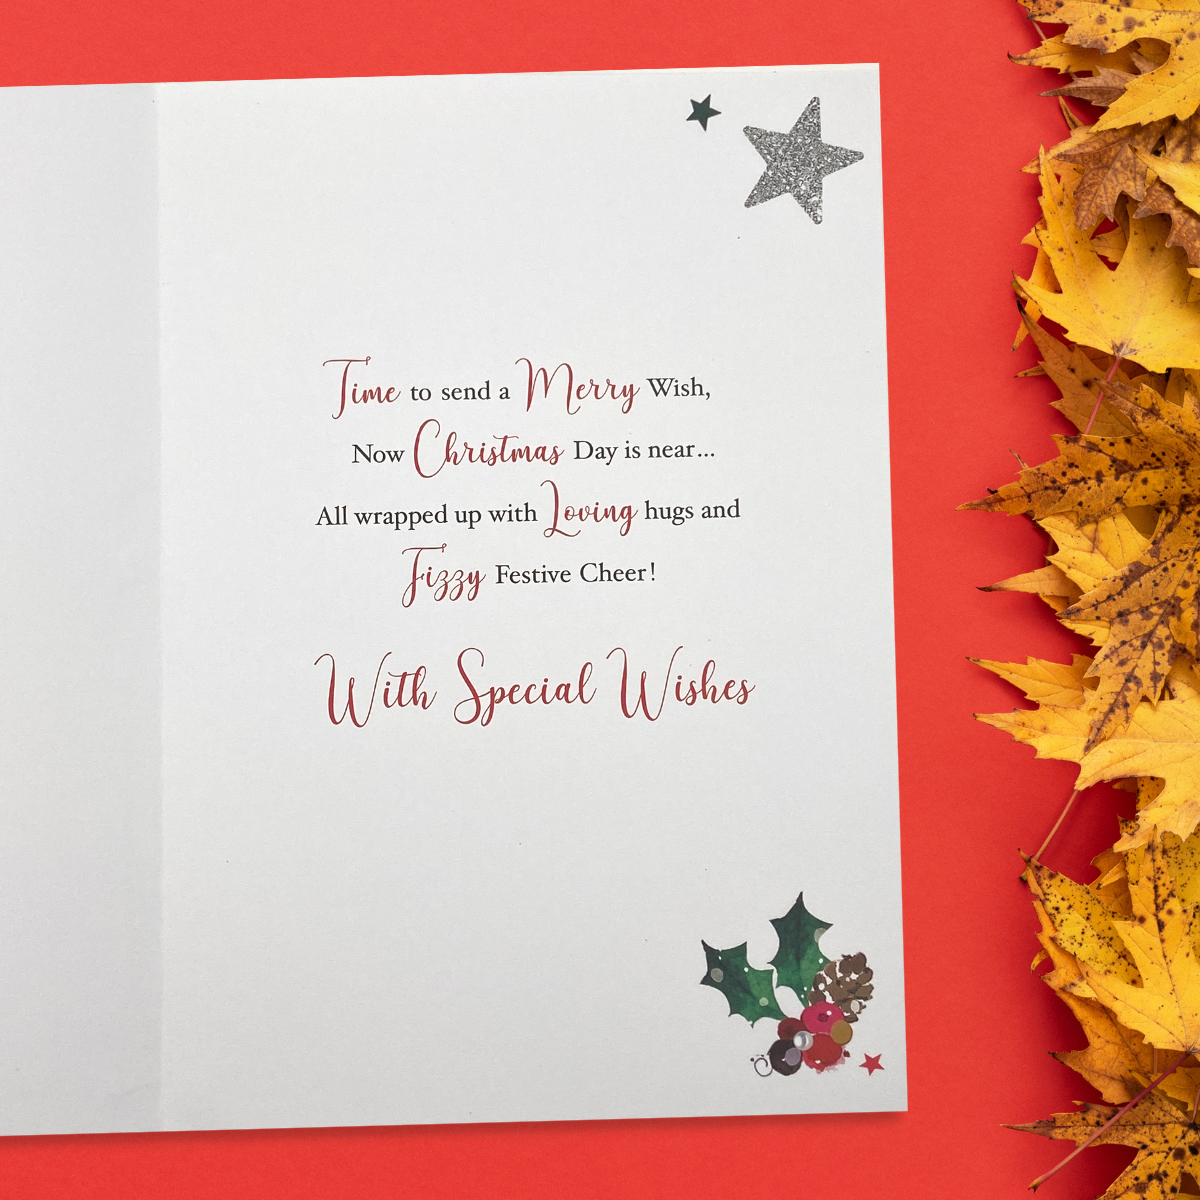 Time to send a Merry Wish,
Now Christmas Day is near...
All wrapped up with Loving hugs and
Fizzy Festive Cheer!
With Special Wishes